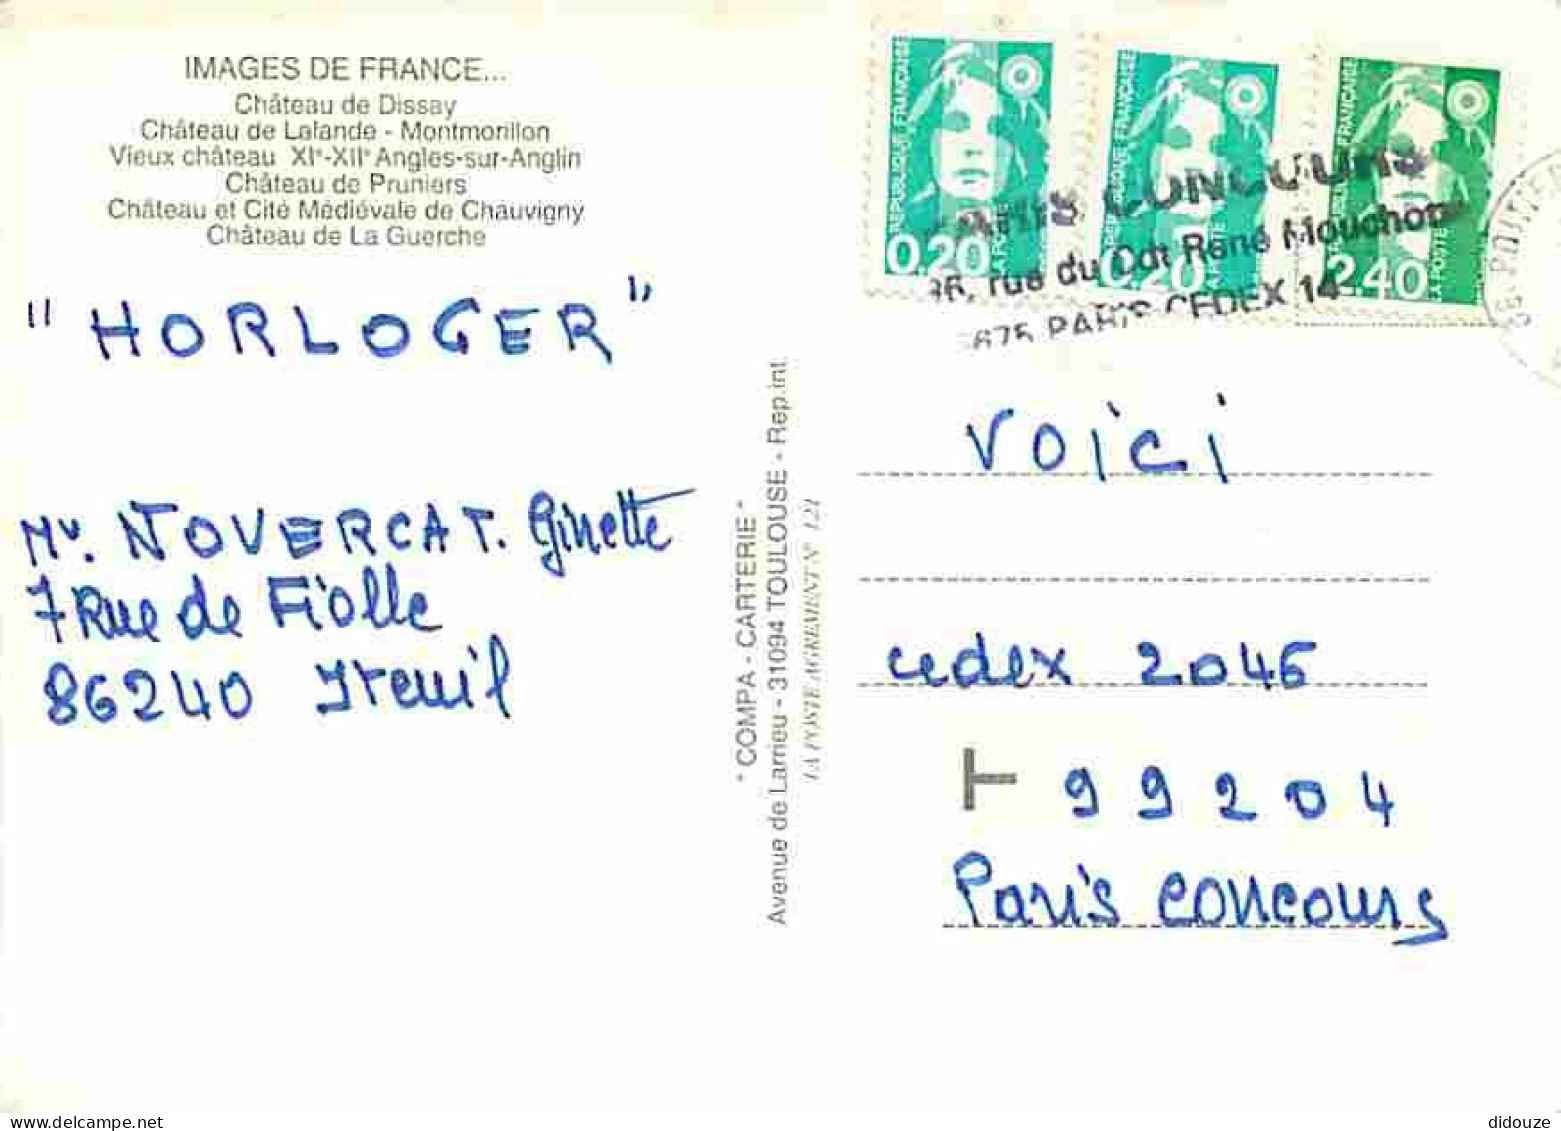 IMAGES DE FRANCE...
Château de Dissay
Château de Lalande - Montmorillon
Vieux château XIe-XIIe Angles-sur-Anglin
Château de Pruniers
Château et Cité Médiévale de Chauvigny
Château de La Guerche
" HORLOGER "
Mr. NOVERCAT. Ginette
7 Rue de Fiolle
86240 Iteuil
" COMPA - CARTERIE "
Avenue de Larrieu - 31094 TOULOUSE - Rep.int.
LA POSTE AGREMENT N° 121
REPUBLIQUE FRANCAISE
0.20
LA POSTE
REPUBLIQUE FRANÇAISE
0.20
LA POSTE
FRANCAISE
2.40
LA POSTE
PARIS CONCOURS
36, rue du Cdt René Mouchotte
675 PARIS CEDEX 14
VOICI
cedex 2046
T 99204
Paris concours
delcampe.net
didouze